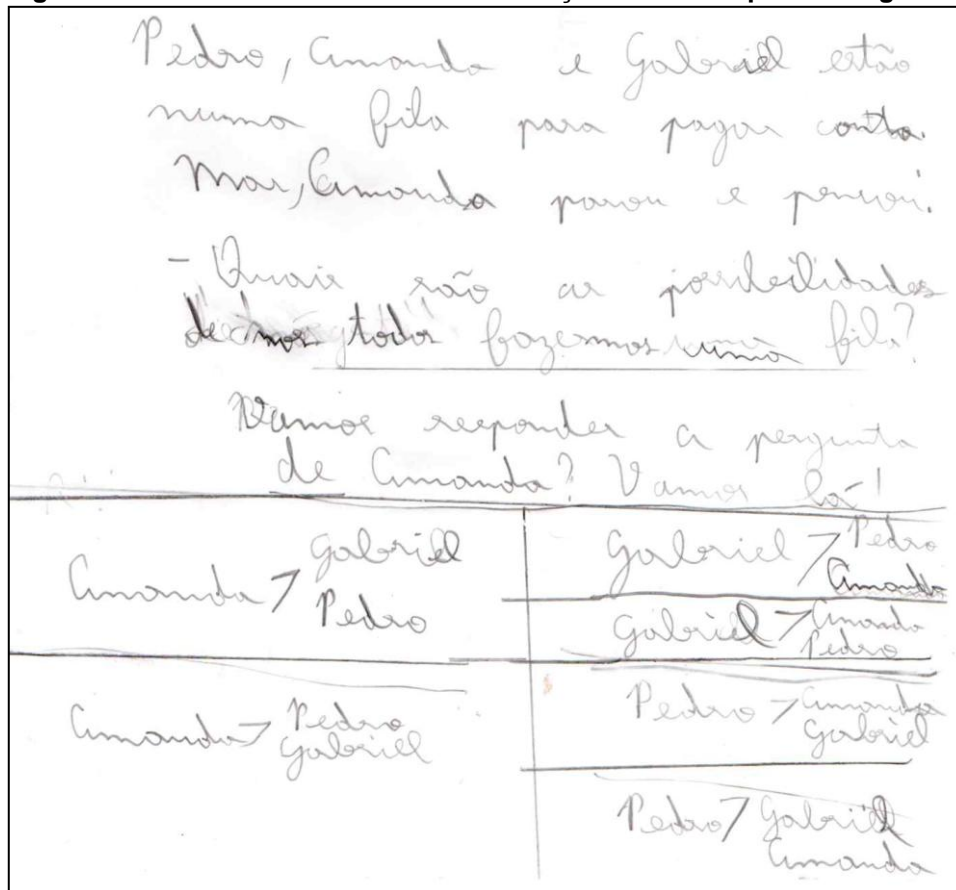 Pedro, Amanda e Gabriel estão
numa fila para pagar conta.
Mas, Amanda parou e pensou:
- Quais são as possibilidades
de nós todos fazermos uma fila?
Vamos responder a pergunta
de Amanda? Vamos lá!
Amanda > Gabriel
Pedro
Amanda > Pedro
Gabriel
Gabriel > Pedro
Amanda
Gabriel > Amanda
Pedro
Pedro > Amanda
Gabriel
Pedro > Gabriel
Amanda